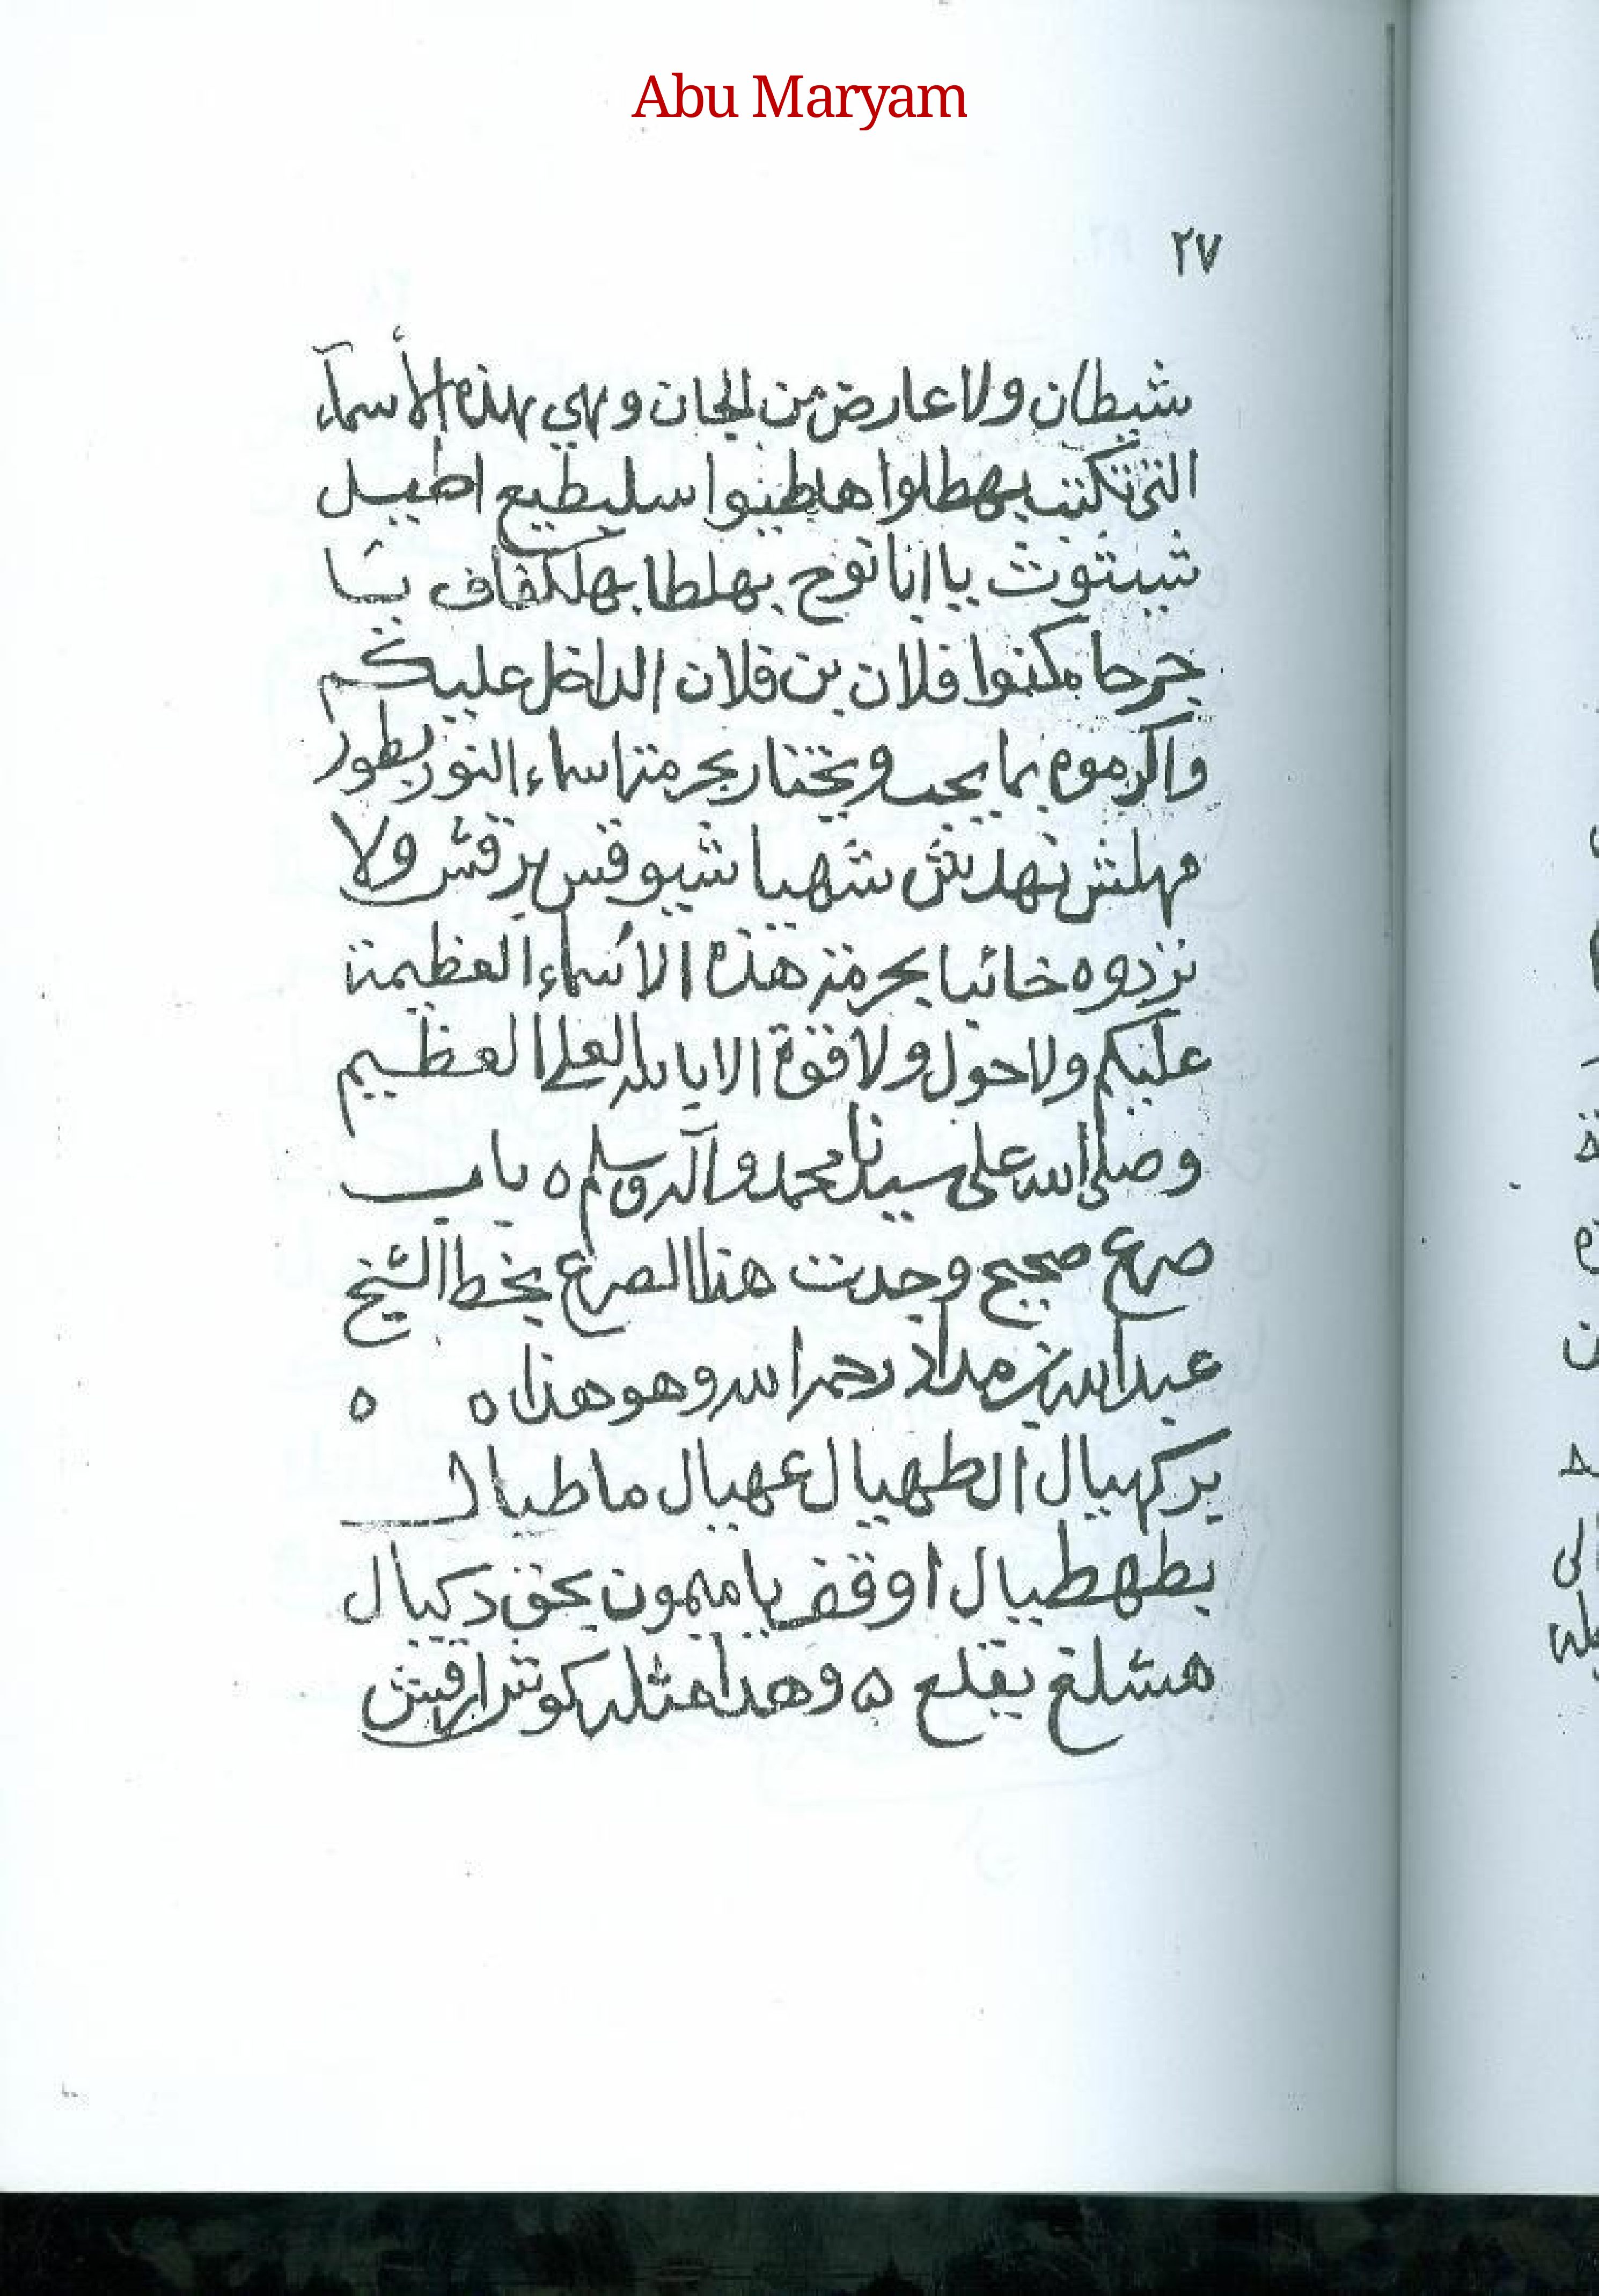 Abu Maryam
٢٧
شيطان ولا عارض من الجان وهي هذه الأسمآء
التي تكتب بهطلوا هلطينوا سليطيع اطيل
ثبيثوث يا انا نوح بهلطا بهلكفاف بسا
جرحا مكنوا فلان بن فلان الداخل عليكم
واكرموه بما يحب ويختار بحرمة اسماء النور بطور
مهلش نهدنش شهبا شيوقس برقش ولا
تردوه خائبا بحرمة هذه الاسماء العظيمة
عليكم ولا حول ولا قوة الا بالله العلي العظيم
وصلى الله على سيدنا محمد وآله وسلم ه باب
صرع صحيح وجدت هذا الصرع بخط الشيخ
عبدالله بن مداد رحمه الله وهو هذا ه ه
بركهيال الطهيال عهيال ماطيال
بطهطيال اوقف يا ميمون بحق دكيال
هشلغ يقلع ه وهذا مثله كوش ارقيش